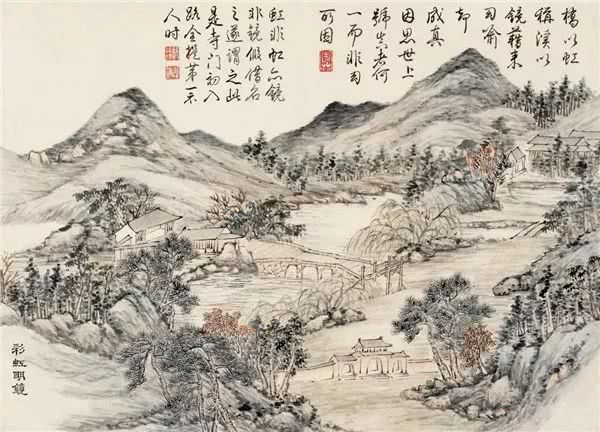 橋以虹
稱溪以
鏡藉來
司喻
却
成真
因思世上
號者何
一而非司
可因
虹非虹亦鏡
非鏡假借名
之遂謂之此
是寺門初入
路全提第一示
人时
彩虹明鏡